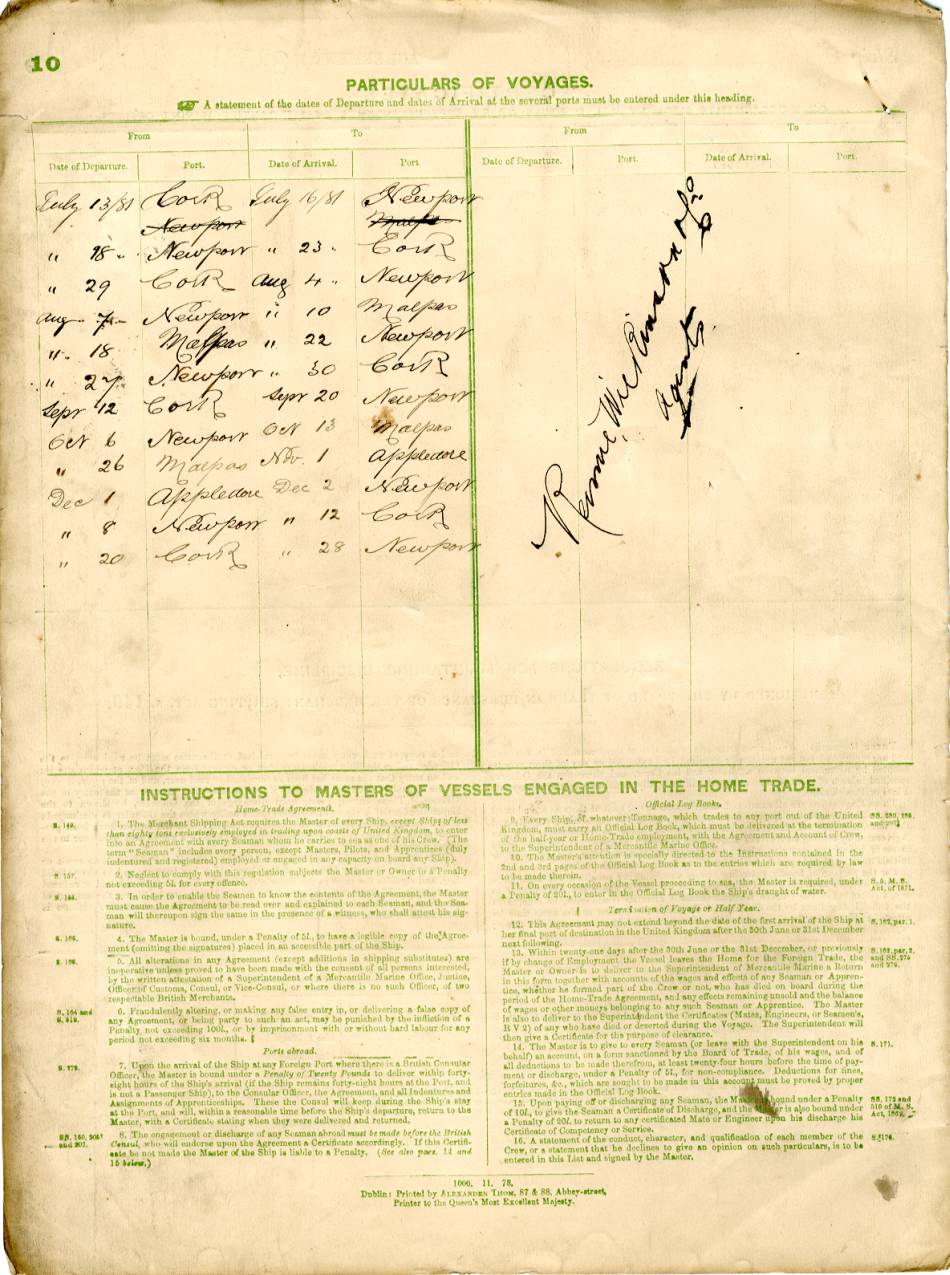 10
PARTICULARS OF VOYAGES.
A statement of the dates of Departure and dates of Arrival at the several ports must be entered under this heading.
From To From To
Date of Departure. Port. Date of Arrival. Port Date of Departure. Port. Date of Arrival. Port.
July 13/81 Cork July 16/81 Newport
Newport Malpas
" 18 " Newport " 23 " Cork
" 29 Cork Aug 4 " Newport
Aug 7 Newport " 10 Malpas
" 18 Malpas " 22 Newport
" 27 Newport " 30 Cork
Sepr 12 Cork Sepr 20 Newport
Oct 6 Newport Oct 13 Malpas
" 26 Malpas Nov. 1 Appledore
Dec 1 Appledore Dec 2 Newport
" 8 Newport " 12 Cork
" 20 Cork " 28 Newport
Agents
INSTRUCTIONS TO MASTERS OF VESSELS ENGAGED IN THE HOME TRADE.
Home-Trade Agreements.
S. 149. 1. The Merchant Shipping Act requires the Master of every Ship, except Ships of less
than eighty tons exclusively employed in trading upon coasts of United Kingdom, to enter
into an Agreement with every Seaman whom he carries to sea as one of his Crew. (The
term "Seaman" includes every person, except Masters, Pilots, and Apprentices (duly
indentured and registered) employed or engaged in any capacity on board any Ship).
S. 157. 2. Neglect to comply with this regulation subjects the Master or Owner to a Penalty
not exceeding 5l. for every offence.
3. In order to enable the Seamen to know the contents of the Agreement, the Master
must cause the Agreement to be read over and explained to each Seaman, and the Sea-
man will thereupon sign the same in the presence of a witness, who shall attest his sig-
nature.
S. 166. 4. The Master is bound, under a Penalty of 5l., to have a legible copy of the Agree-
ment (omitting the signatures) placed in an accessible part of the Ship.
5. All alterations in any Agreement (except additions in shipping substitutes) are
inoperative unless proved to have been made with the consent of all persons interested,
by the written attestation of a Superintendent of a Mercantile Marine Office, Justice,
Officer of Customs, Consul, or Vice-Consul, or where there is no such Officer, of two
respectable British Merchants.
6. Fraudulently altering, or making any false entry in, or delivering a false copy of
any Agreement, or being party to such an act, may be punished by the infliction of a
Penalty, not exceeding 100l., or by imprisonment with or without hard labour for any
period not exceeding six months.
Ports abroad.
7. Upon the arrival of the Ship at any Foreign Port where there is a British Consular
Officer, the Master is bound under a Penalty of Twenty Pounds to deliver within forty-
eight hours of the Ship's arrival (if the Ship remains forty-eight hours at the Port, and
is not a Passenger Ship), to the Consular Officer, the Agreement, and all Indentures and
Assignments of Apprenticeships. These the Consul will keep during the Ship's stay
at the Port, and will, within a reasonable time before the Ship's departure, return to the
Master, with a Certificate stating when they were delivered and returned.
8. The engagement or discharge of any Seaman abroad must be made before the British
Consul, who will endorse upon the Agreement a Certificate accordingly. If this Certifi-
cate be not made the Master of the Ship is liable to a Penalty. (See also pars. 14 and
15 below.)
Official Log Books.
9. Every Ship, of whatever Tonnage, which trades to any port out of the United
Kingdom, must carry an Official Log Book, which must be delivered at the termination
of the half-year or Home-Trade employment, with the Agreement and Account of Crew,
to the Superintendent of a Mercantile Marine Office.
10. The Master's attention is specially directed to the Instructions contained in the
2nd and 3rd pages of the Official Log Book as to the entries which are required by law
to be made therein.
11. On every occasion of the Vessel proceeding to sea, the Master is required, under
a Penalty of 20l., to enter in the Official Log Book the Ship's draught of water.
Termination of Voyage or Half Year.
12. This Agreement may not extend beyond the date of the first arrival of the Ship at S. 162, par. 1.
her final port of destination in the United Kingdom after the 30th June or 31st December
next following.
13. Within twenty-one days after the 30th June or the 31st December, or previously
if by change of Employment the Vessel leaves the Home for the Foreign Trade, the
Master or Owner is to deliver to the Superintendent of Mercantile Marine a Return
in this form together with accounts of the wages and effects of any Seaman or Appren-
tice, whether he formed part of the Crew or not, who has died on board during the
period of the Home-Trade Agreement, and any effects remaining unsold and the balance
of wages or other moneys belonging to any such Seaman or Apprentice. The Master
is also to deliver to the Superintendent the Certificates (Mates, Engineers, or Seamen's,
R V 2) of any who have died or deserted during the Voyage. The Superintendent will
then give a Certificate for the purpose of clearance.
14. The Master is to give to every Seaman (or leave with the Superintendent on his S. 171.
behalf) an account, on a form sanctioned by the Board of Trade, of his wages, and of
all deductions to be made therefrom, at least twenty-four hours before the time of pay-
ment or discharge, under a Penalty of 5l., for non-compliance. Deductions for fines,
forfeitures, &c., which are sought to be made in this account must be proved by proper
entries made in the Official Log Book.
15. Upon paying off or discharging any Seaman, the Master is bound under a Penalty
of 10l., to give the Seaman a Certificate of Discharge, and the Master is also bound under
a Penalty of 20l. to return to any certificated Mate or Engineer upon his discharge his
Certificate of Competency or Service.
16. A statement of the conduct, character, and qualification of each member of the
Crew, or a statement that he declines to give an opinion on such particulars, is to be
entered in this List and signed by the Master.
1000. 11. 78.
Dublin: Printed by ALEXANDER THOM, 87 & 88, Abbey-street,
Printer to the Queen's Most Excellent Majesty.